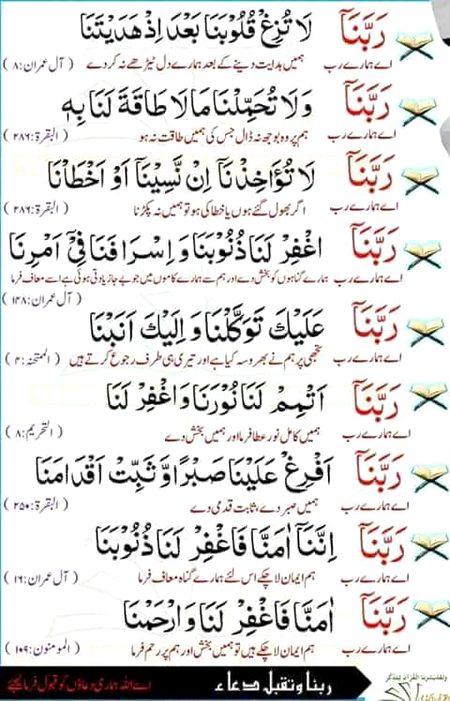 رَبَّنَآ لَا تُزِغْ قُلُوْبَنَا بَعْدَ اِذْ هَدَيْتَنَا
اے ہمارے رب ہمیں ہدایت دینے کے بعد ہمارے دل ٹیڑھے نہ کر دے (آل عمران:۸)
رَبَّنَآ وَلَا تُحَمِّلْنَا مَا لَا طَاقَةَ لَنَا بِهٖ
اے ہمارے رب ہم پر وہ بوجھ نہ ڈال جس کی ہمیں طاقت نہ ہو (البقرة:۲۸۶)
رَبَّنَآ لَا تُؤَاخِذْنَآ اِنْ نَّسِيْنَآ اَوْ اَخْطَاْنَا
اے ہمارے رب اگر بھول گئے ہوں یا خطا کی ہو تو ہمیں نہ پکڑنا (البقرة:۲۸۶)
رَبَّنَا اغْفِرْ لَنَا ذُنُوْبَنَا وَ اِسْرَافَنَا فِيْٓ اَمْرِنَا
اے ہمارے رب ہمارے گناہوں کو بخش دے اور ہم سے ہمارے کاموں میں جو بے جا زیادتی ہوئی ہے اسے معاف فرما
(آل عمران:۱۴۸)
رَبَّنَا عَلَيْكَ تَوَكَّلْنَا وَ اِلَيْكَ اَنَبْنَا
اے ہمارے رب تجھی پر ہم نے بھروسہ کیا ہے اور تیری ہی طرف رجوع کرتے ہیں (الممتحنہ:۴)
رَبَّنَآ اَتْمِمْ لَنَا نُوْرَنَا وَ اغْفِرْ لَنَا
اے ہمارے رب ہمیں کامل نور عطا فرما اور ہمیں بخش دے (التحریم:۸)
رَبَّنَآ اَفْرِغْ عَلَيْنَا صَبْرًا وَّ ثَبِّتْ اَقْدَامَنَا
اے ہمارے رب ہمیں صبر دے، ثابت قدمی دے (البقرة:۲۵۰)
رَبَّنَآ اِنَّنَآ اٰمَنَّا فَاغْفِرْ لَنَا ذُنُوْبَنَا
اے ہمارے رب ہم ایمان لا چکے اس لئے ہمارے گناہ معاف فرما (آل عمران:۱۶)
رَبَّنَآ اٰمَنَّا فَاغْفِرْ لَنَا وَ ارْحَمْنَا
اے ہمارے رب ہم ایمان لا چکے ہیں تو ہمیں بخش اور ہم پر رحم فرما (المومنون:۱۰۹)
ربنا وتقبل دعاء اے اللہ ہماری دعاؤں کو قبول فرما لیجئے